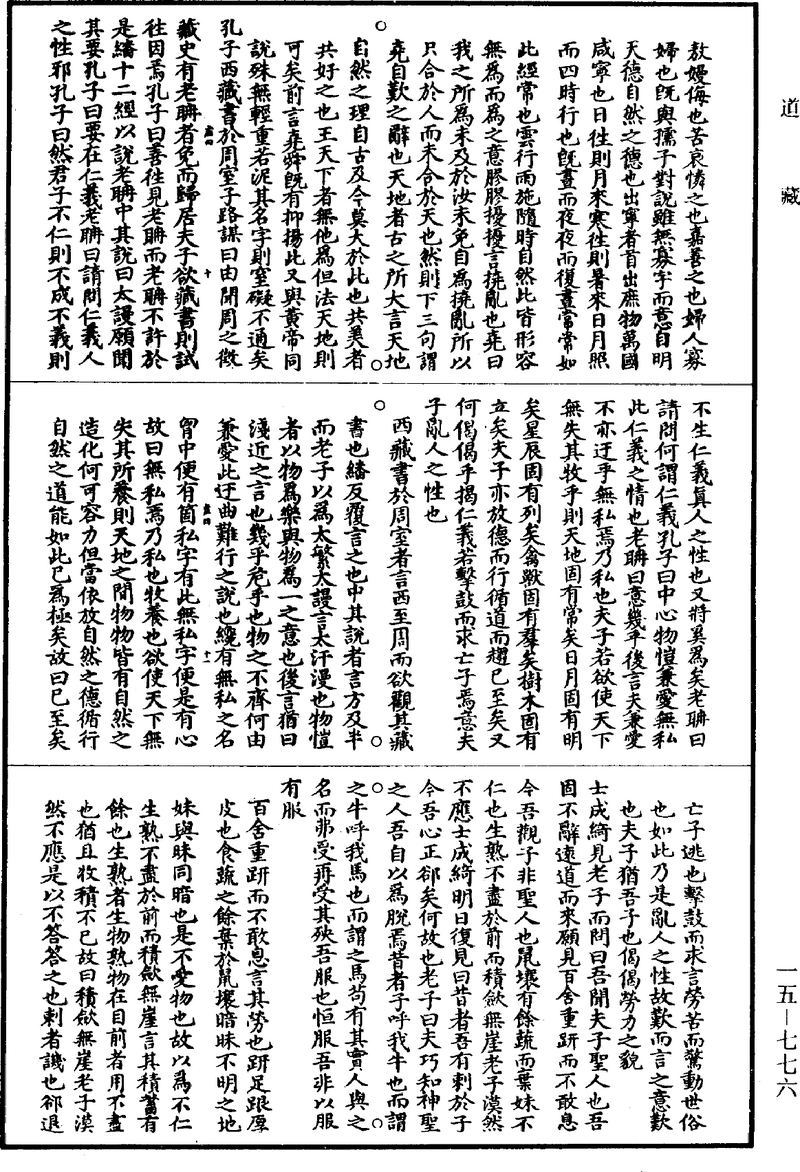 道藏
敖嫚侮也苦哀憐之也嘉善之也婦人寡
婦也既與孺子對說雖無寡字而意自明
天德自然之德也出寧者首出庶物萬國
咸寧也日往則月來寒往則暑來日月照
而四時行也既晝而夜夜而復晝常常如
此經常也雲行雨施隨時自然此皆形容
無為而為之意膠膠擾擾言撓亂也堯曰
我之所為未及於汝未免自為撓亂所以
只合於人而未合於天也然則下三句謂
堯自歎之辭也天地者古之所大言天地
自然之理自古及今莫大於此也共美者
共好之也王天下者無他為但法天地則
可矣前言堯舜既有抑揚此又與黃帝同
說殊無輕重若泥其名字則窒礙不通矣
孔子西藏書於周室子路謀曰由聞周之徵
藏史有老聃者免而歸居夫子欲藏書則試
往因焉孔子曰善往見老聃而老聃不許於
是繙十二經以說老聃中其說曰太謾願聞
其要孔子曰要在仁義老聃曰請問仁義人
之性邪孔子曰然君子不仁則不成不義則
不生仁義真人之性也又將奚為矣老聃曰
請問何謂仁義孔子曰中心物愷兼愛無私
此仁義之情也老聃曰意幾乎後言夫兼愛
不亦迂乎無私焉乃私也夫子若欲使天下
無失其牧乎則天地固有常矣日月固有明
矣星辰固有列矣禽獸固有羣矣樹木固有
立矣夫子亦放德而行循道而趨已至矣又
何偈偈乎揭仁義若擊鼓而求亡子焉意夫
子亂人之性也
西藏書於周室者言西至周而欲觀其藏
書也繙反覆言之也中其說者言方及半
而老子以為太繁太謾言太汗漫也物愷
者以物為樂與物為一之意也後言猶曰
淺近之言也幾乎危乎也物之不齊何由
兼愛此迂曲難行之說也纔有無私之名
胷中便有箇私字有此無私字便是有心
故曰無私焉乃私也牧養也欲使天下無
失其所養則天地之間物物皆有自然之
造化何可容力但當依放自然之德循行
自然之道能如此已為極矣故曰已至矣
亡子逃也擊鼓而求言勞苦而驚動世俗
也如此乃是亂人之性故歎而言之意歎
也夫子猶吾子也偈偈勞力之貌
士成綺見老子而問曰吾聞夫子聖人也吾
固不辭遠道而來願見百舍重趼而不敢息
今吾觀子非聖人也鼠壤有餘蔬而棄妹不
仁也生熟不盡於前而積歛無崖老子漠然
不應士成綺明日復見曰昔者吾有刺於子
今吾心正郤矣何故也老子曰夫巧知神聖
之人吾自以為脫焉昔者子呼我牛也而謂
之牛呼我馬也而謂之馬苟有其實人與之
名而弗受再受其殃吾服也恒服吾非以服
有服
百舍重趼而不敢息言其勞也趼足跟厚
皮也食蔬之餘棄於鼠壤暗昧不明之地
妹與昧同暗也是不愛物也故以為不仁
生熟不盡於前而積歛無崖言其積蓄有
餘也生熟者生物熟物在目前者用不盡
也猶且收積不已故曰積歛無崖老子漠
然不應是以不答答之也刺者譏也郤退
一五—七七六